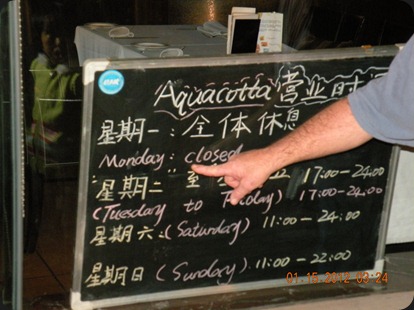 "Aquacotta" 营业时间
星期一: 全体休息
Monday: closed
"星期二" 至 17:00-24:00
(Tuesday to Friday) 17:00-24:00
星期六:(Saturday) 11:00-24:00
星期日 (Sunday). 11:00-22:00